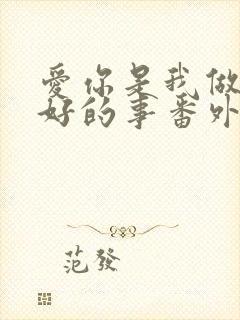 爱你是我做
好的事番外
范發